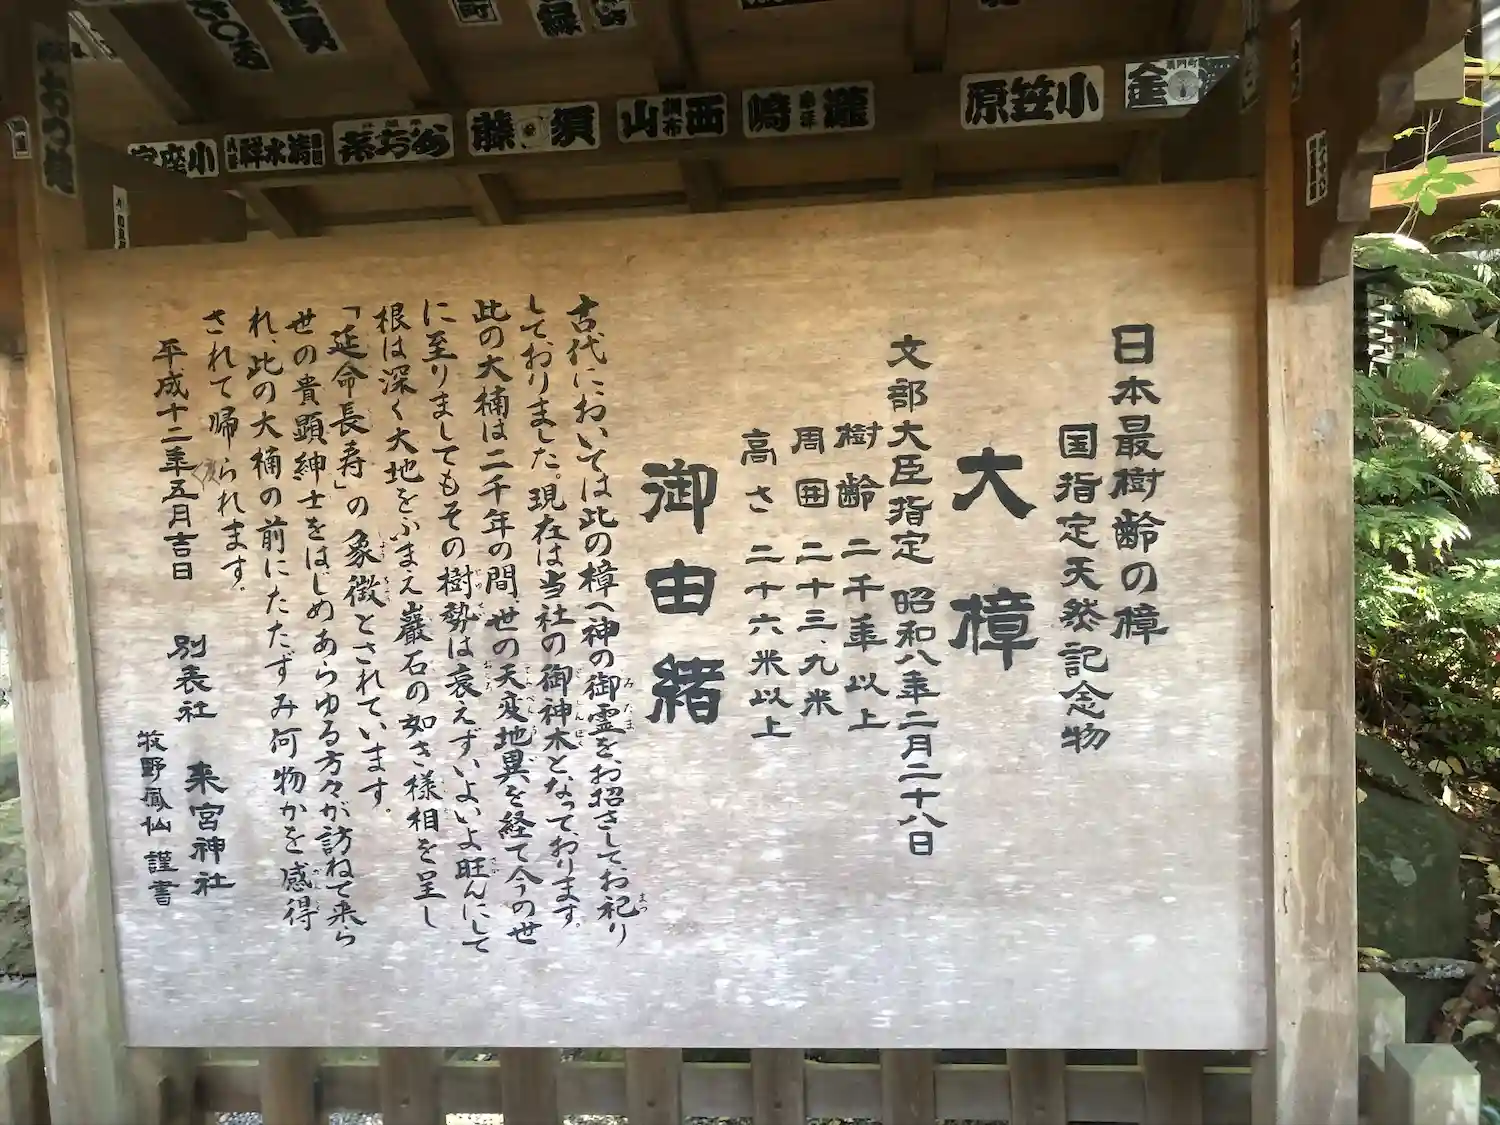 日本最樹齢の樟
国指定天然記念物
大樟
文部大臣指定 昭和八年二月二十八日
樹齢 二千年以上
周囲 二十三、九米
高さ 二十六米以上
御由緒
古代においては此の樟へ神の御霊をお招きしてお祀り
しておりました。現在は当社の御神木となっております。
此の大楠は二千年の間、世の天変地異を経て今の世
に至りましてもその樹勢は衰えずいよいよ旺んにして
根は深く大地をふまえ巖石の如き様相を呈し
「延命長寿」の象徴とされています。
世の貴顕紳士をはじめあらゆる方々が訪ねて来ら
れ、此の大楠の前にたたずみ何物かを感得
されて帰られます。
平成十二年五月吉日
別表社 来宮神社
牧野鳳仙 謹書
小笠原
瀧崎
西山
須藤
清水
小座